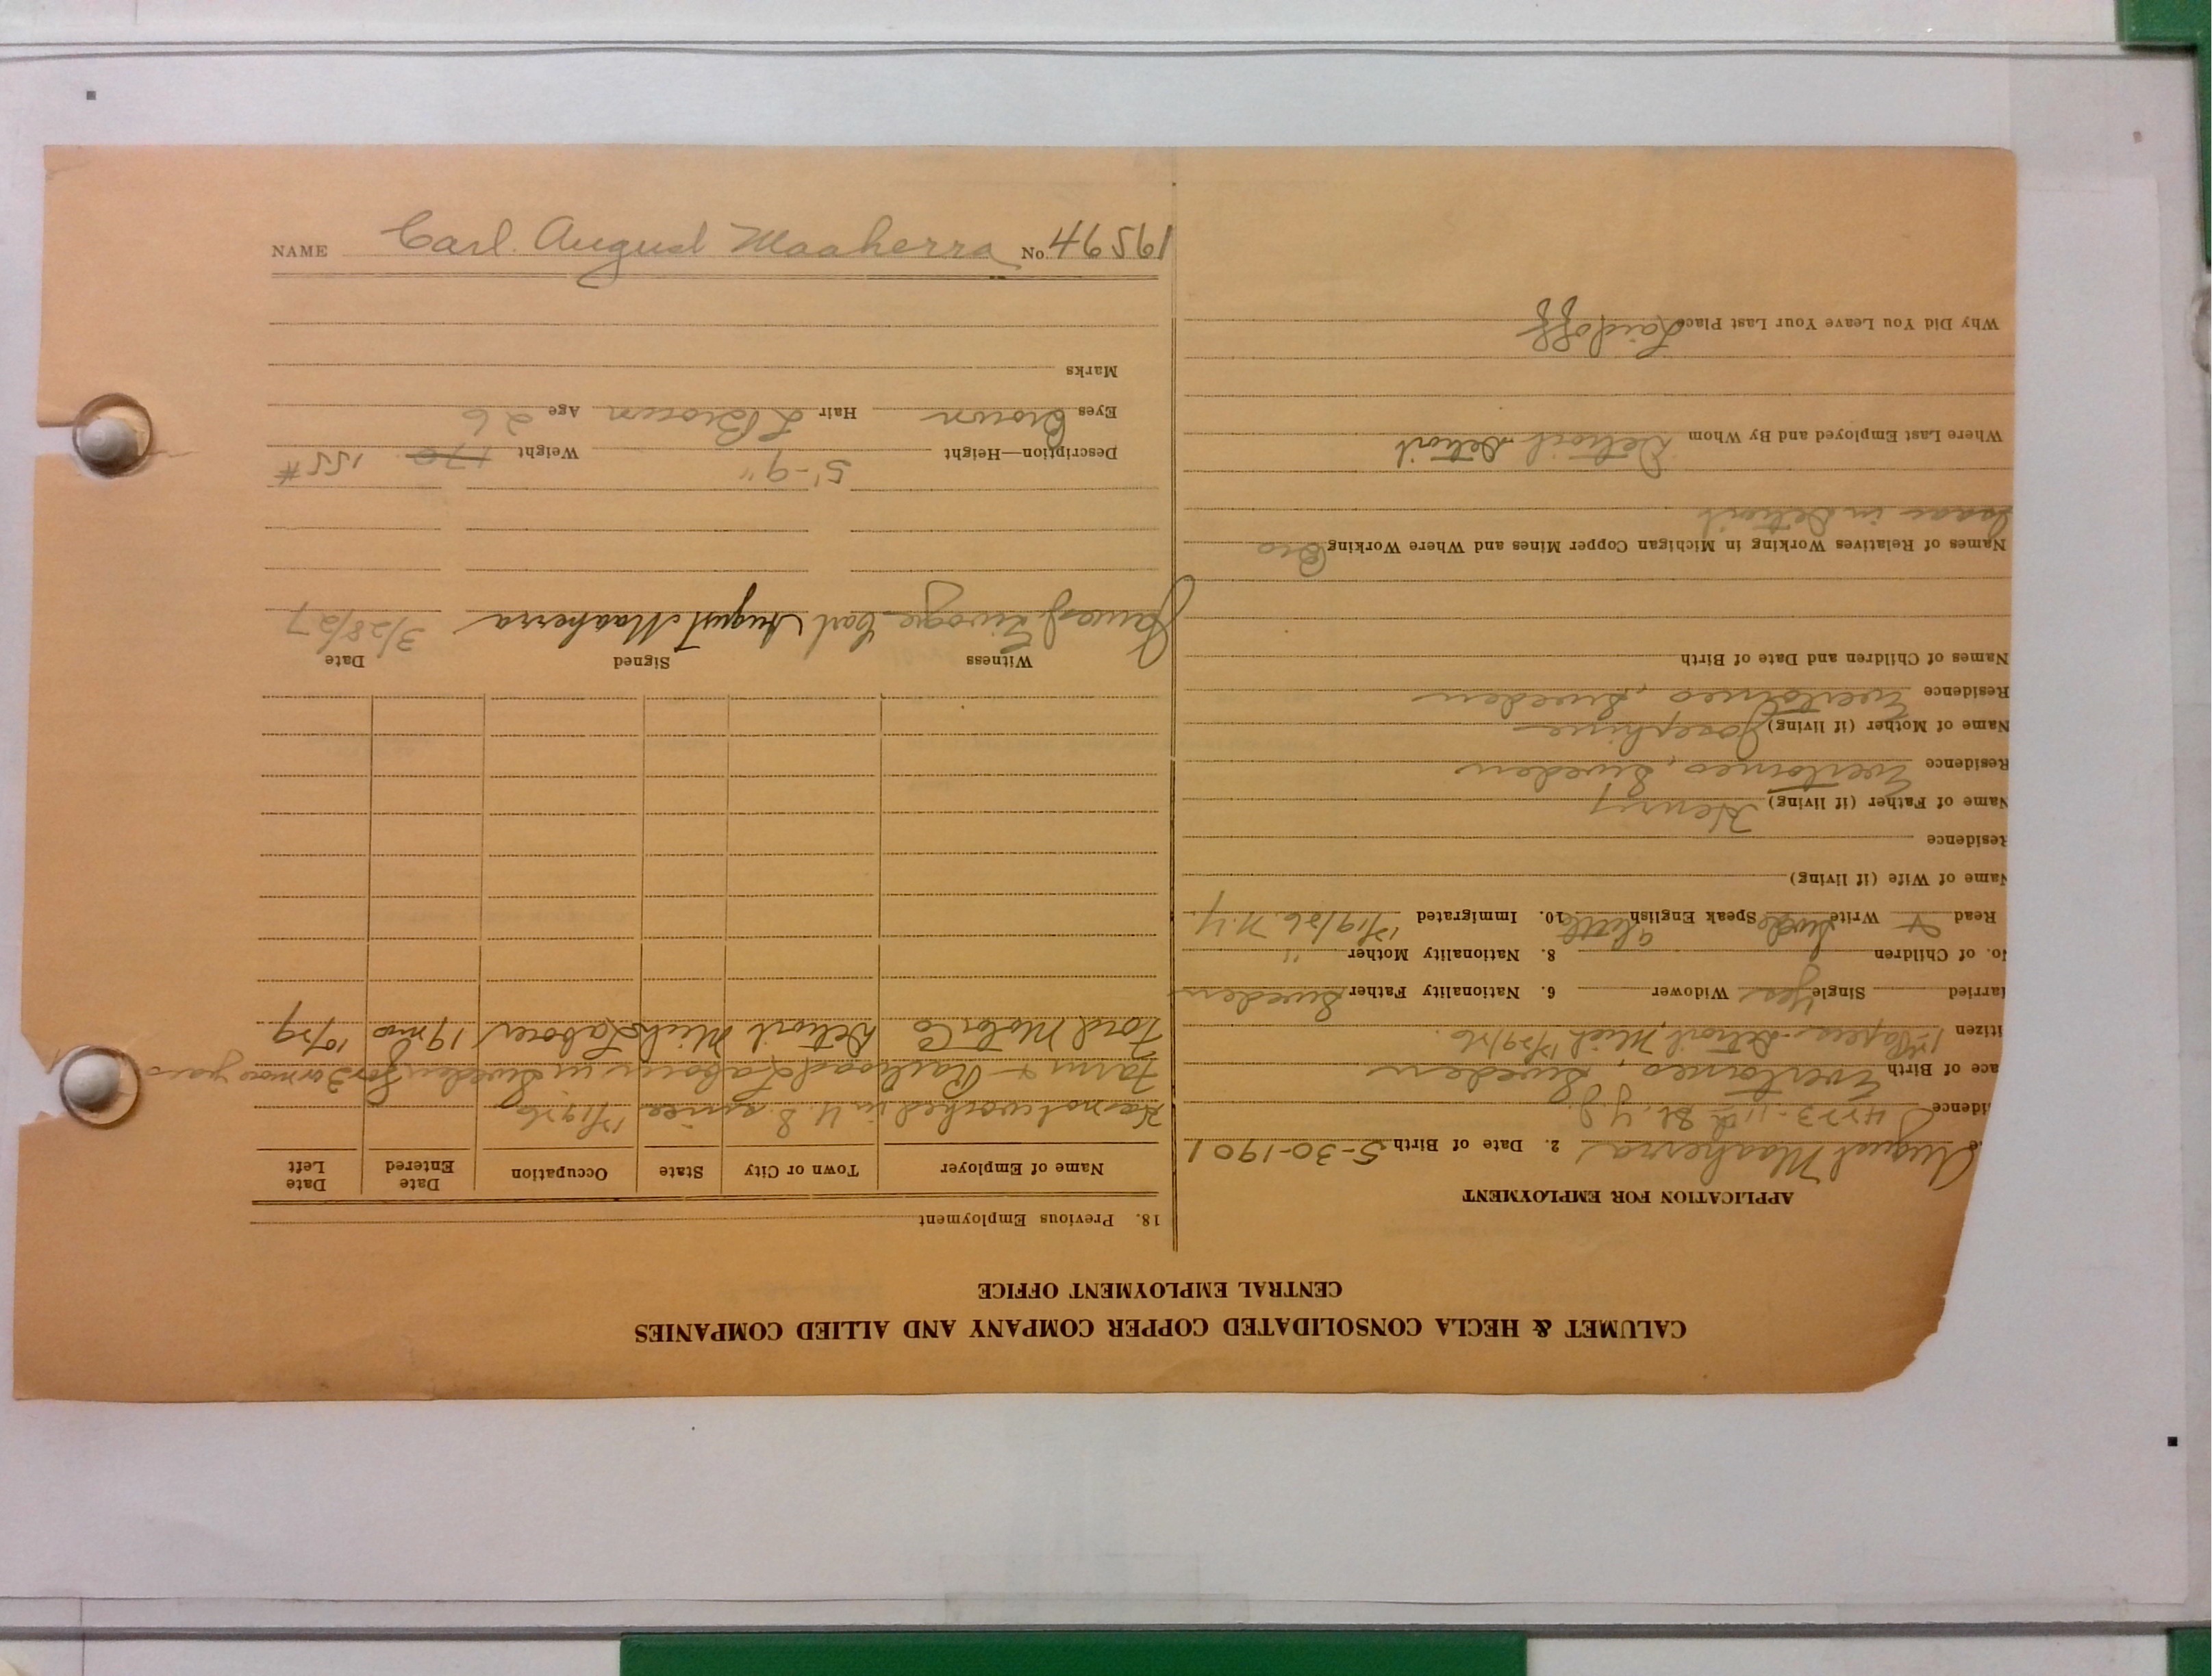 NAME Carl August Maaherra No. 46561
CALUMET & HECLA CONSOLIDATED COPPER COMPANY AND ALLIED COMPANIES
CENTRAL EMPLOYMENT OFFICE
APPLICATION FOR EMPLOYMENT
August Maaherra 2. Date of Birth 5-30-1901
idence 4773-11th St. Y.J.
ace of Birth Evertorneo, Sweden
itizen 1st Papers-Detroit, Mich 12/29/26
arried Single Yes Widower 6. Nationality Father Sweden
No. of Children 8. Nationality Mother "
Read & Write Swede Speak English a little 10. Immigrated N.Y.
Name of Wife (if living)
Residence
Name of Father (if living) Henry
Residence Evertorneo, Sweden
Name of Mother (if living) Josephine
Residence Evertorneo, Sweden
Names of Children and Date of Birth
Names of Relatives Working in Michigan Copper Mines and Where Working Bro
Isaac in Detroit
Where Last Employed and By Whom Detroit Detroit
Why Did You Leave Your Last Place Laid off
18. Previous Employment
Name of Employer Town or City State Occupation Date Entered Date Left
Has not worked in U.S. since
Farm & Railroad Laborer in Sweden for 3 or more years
Ford Motor Co Detroit Mich Laborer 19 mo
Witness Signed Date
James Carl August Maaherra 3/28/27
Description—Height 5'-9" Weight 170 155#
Eyes Brown Hair L Brown Age 26
Marks